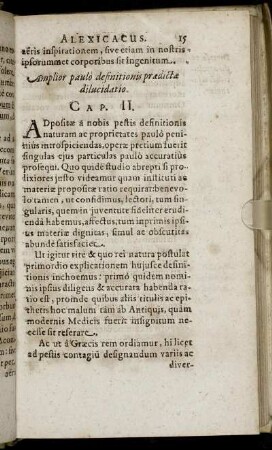 ALEXICACUS. 15
aëris inspirationem, sive etiam in nostris
ipsorummet corporibus sit ingenitum.
Amplior paulò definitionis prædictæ
dilucidatio.
CAP. II.
ADpositæ à nobis pestis definitionis
naturam ac proprietates paulò peni-
nius introspiciendas, operæ pretium fuerit
singulas ejus particulas paulò accuratiùs
prosequi. Quo quidē studio abrepti si pro-
lixiores justo videamur quàm instituti ac
materiæ propositæ ratio requirat: benevo-
lo tamen, ut confidimus, lectori, tum sin-
gularis, quem in juventute fideliter erudi-
enda habemus, affectus, tum inprimis ipsi-
us materiæ dignitas, simul ac obscuritas
abundè satisfaciet.
Ut igitur ritè & quo rei natura postulat
primordio explicationem hujusce defini-
tionis inchoemus: primò quidem nomi-
nis ipsius diligens & accurata habenda ra-
tio est, proinde quibus aliis titulis ac epi-
thetis hoc malum tàm ab Antiquis, quàm
modernis Medicis fuerit insignitum ne-
cesse sit reserare.
Ac ut à Græcis rem ordiamur, hi licet
ad pestis contagiū designandum variis ac
diver-